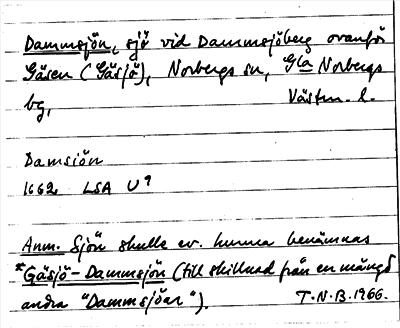 Dammsjön, sjö vid Dammsjöberg ovanför
Gäsen (Gäsjö), Norbergs sn, Gla Norbergs
bg, Västm. l.
Damsiön
1662 LSA U9
Anm. Sjön skulle ev. kunna benämnas
*Gäsjö-Dammsjön (till skillnad från en mängd
andra "Dammsjöar"). T.N.B. 1966.